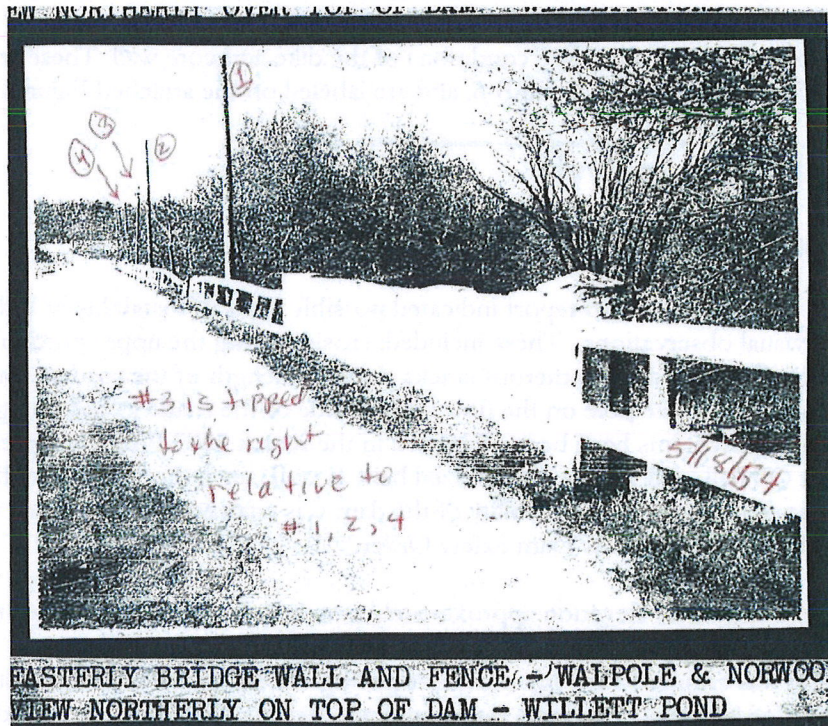 EW NORTHERLY OVER TOP OF DAM - WILLETT POND
1
2
3
4
#3 is tipped
to the right
relative to
#1, 2, 4
5/18/54
EASTERLY BRIDGE WALL AND FENCE - WALPOLE & NORWOO
VIEW NORTHERLY ON TOP OF DAM - WILLETT POND